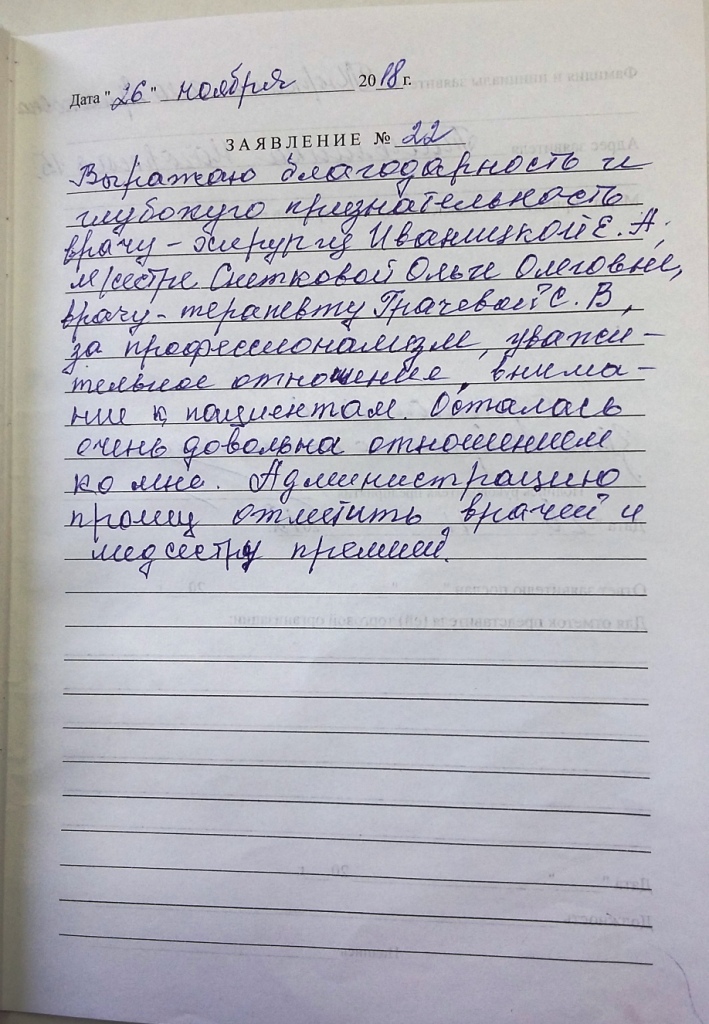 Дата "26" ноября 2018 г.
ЗАЯВЛЕНИЕ № 22
Выражаю благодарность и
глубокую признательность
врачу-хирургу Иваницкой Е. А,
м/сестре Снетковой Ольге Олеговне,
врачу-терапевту Грачевой С. В,
за профессионализм, уважи-
тельное отношение, внима-
ние к пациентам. Осталась
очень довольна отношением
ко мне. Администрацию
прошу отметить врачей и
медсестру премией.